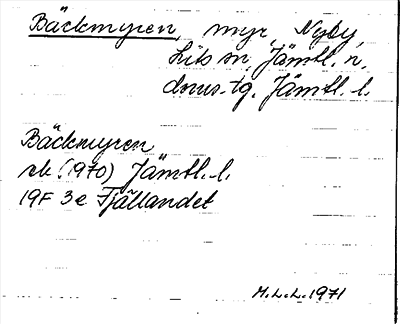 Bäckmyren, myr, Nyby,
Lits sn, Jämtl. n.
doms.-tg. Jämtl. l.
Bäckmyren
ek. (1970) Jämtl. l.
19F 3e Fjällandet
M.L.L. 1971